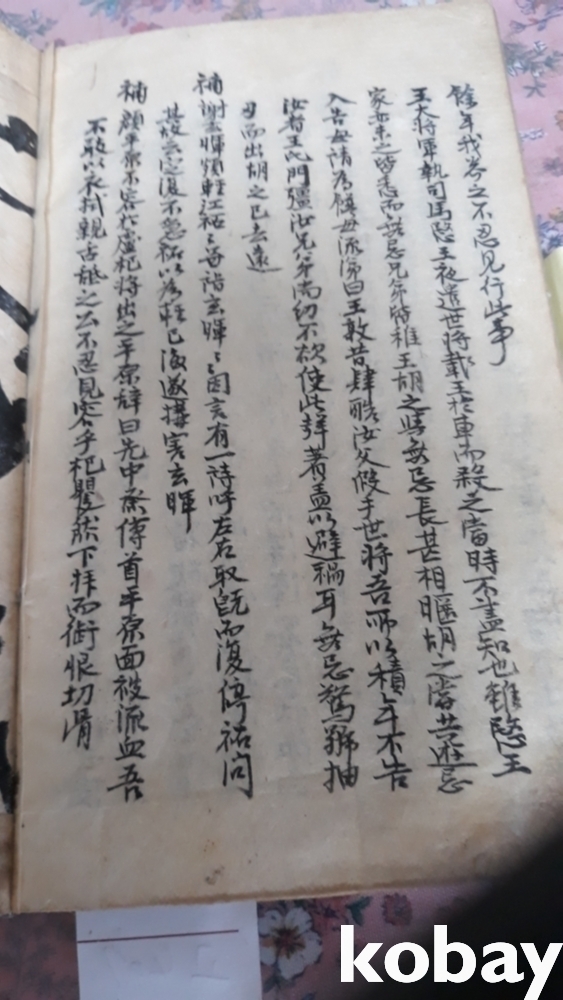 餘年我岑之不忍見行此事
王大將軍執司馬愍王夜遣世將載王於車而殺之當時不盡知也雖愍王
家亦未之皆悉而無忌兄弟皆稚王胡之與無忌長甚相暱胡之嘗共遊無忌
入告母請爲饌母流涕曰王敦昔肆酷汝父假手世將吾所以積年不告
汝者王氏門彊汝兄弟尚幼不欲使此聲著盖以避禍耳無忌驚號抽
刃而出胡之已去遠
補謝玄暉頻輕江祏祏甞詣玄暉暉因言有一詩呼左右取旣而復停祏問
其故云定復不急祏以爲輕已後遂構害玄暉
補顔平原不容於盧杞將出之平原辭曰先中丞傳首平原面被流血吾
不敢以衣拭親舌舐之公不忍見容乎杞矍然下拜而銜恨切骨
kobay